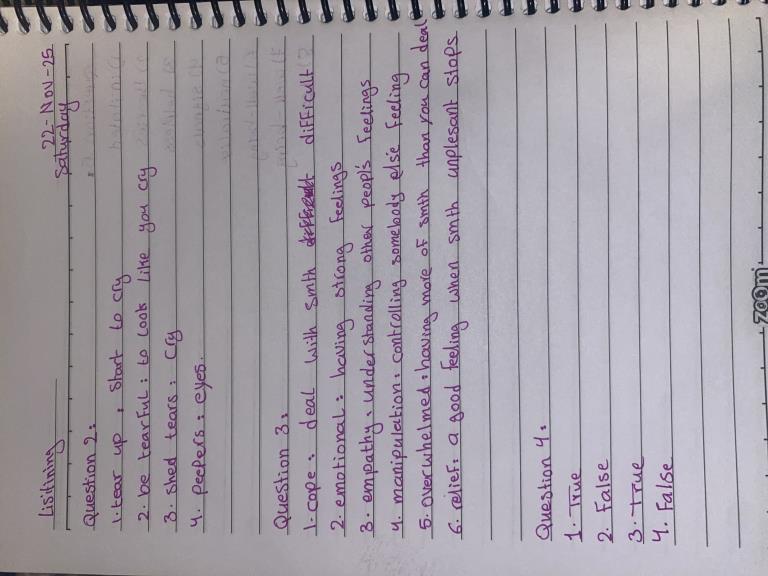 Lisitining
22-Nov-25
Saturday
Question 2:
1. tear up : Start to cry
2. be tearful : to look like you cry
3. shed tears : cry
4. peepers : eyes.
Question 3:
1. cope : deal with smth difficult
2. emotional : having strong feelings
3. empathy : understanding other peopl's feelings
4. manipulation : controlling somebody else feeling
5. overwhelmed : having more of smth than you can deal
6. relief : a good feeling when smth unplesant stops
Question 4:
1. True
2. False
3. True
4. False
zoom